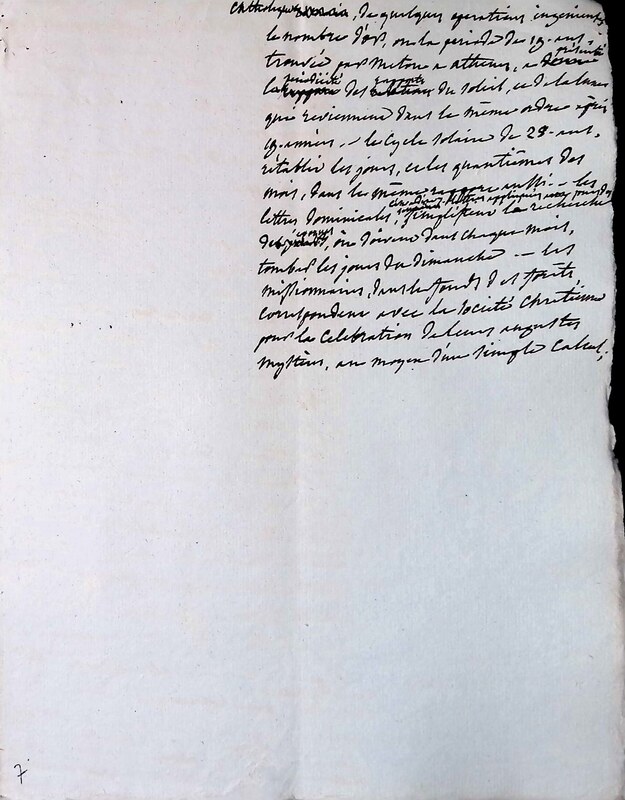 catholiques, de quelques operations ingenieuses
le nombre d'or, ou la periode de 19. ans,
trouvée par Meton a athenes, a présenté
la périodicité des rapports du soleil, et de la lune
qui reviennent dans le même ordre après
19. années. — le Cycle solaire de 28. ans,
rétablit les jours, et les quantièmes des
mois, dans le même rapport aussi — les
lettres dominicales, simplifient la recherche
des époques, où doivent dans chaque mois,
tomber les jours du dimanche — les
missionnaires, dans le fonds des forêts
correspondent avec la société chretienne
pour la celebration de leurs augustes
mystères, au moyen d'un simple calcul,
7